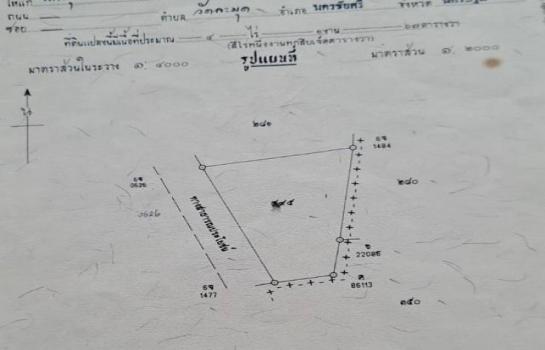 ถนน
ตำบล วัดละมุด อำเภอ นครชัยศรี จังหวัด
ซอย
ที่ดินแปลงนี้มีเนื้อที่ประมาณ ๔ ไร่ ๑ งาน ๖๗ ตารางวา
(สี่ไร่หนึ่งงานหกสิบเจ็ดตารางวา)
มาตราส่วนในระวาง ๑:๔๐๐๐ รูปแผนที่ มาตราส่วน ๑:๒๐๐๐
๒๘๑
6จ
1484
6จ
0626
0626
ทางสาธารณประโยชน์
๒๘๐
ข
22086
6จ
1477
ค
86113
๓๕๐